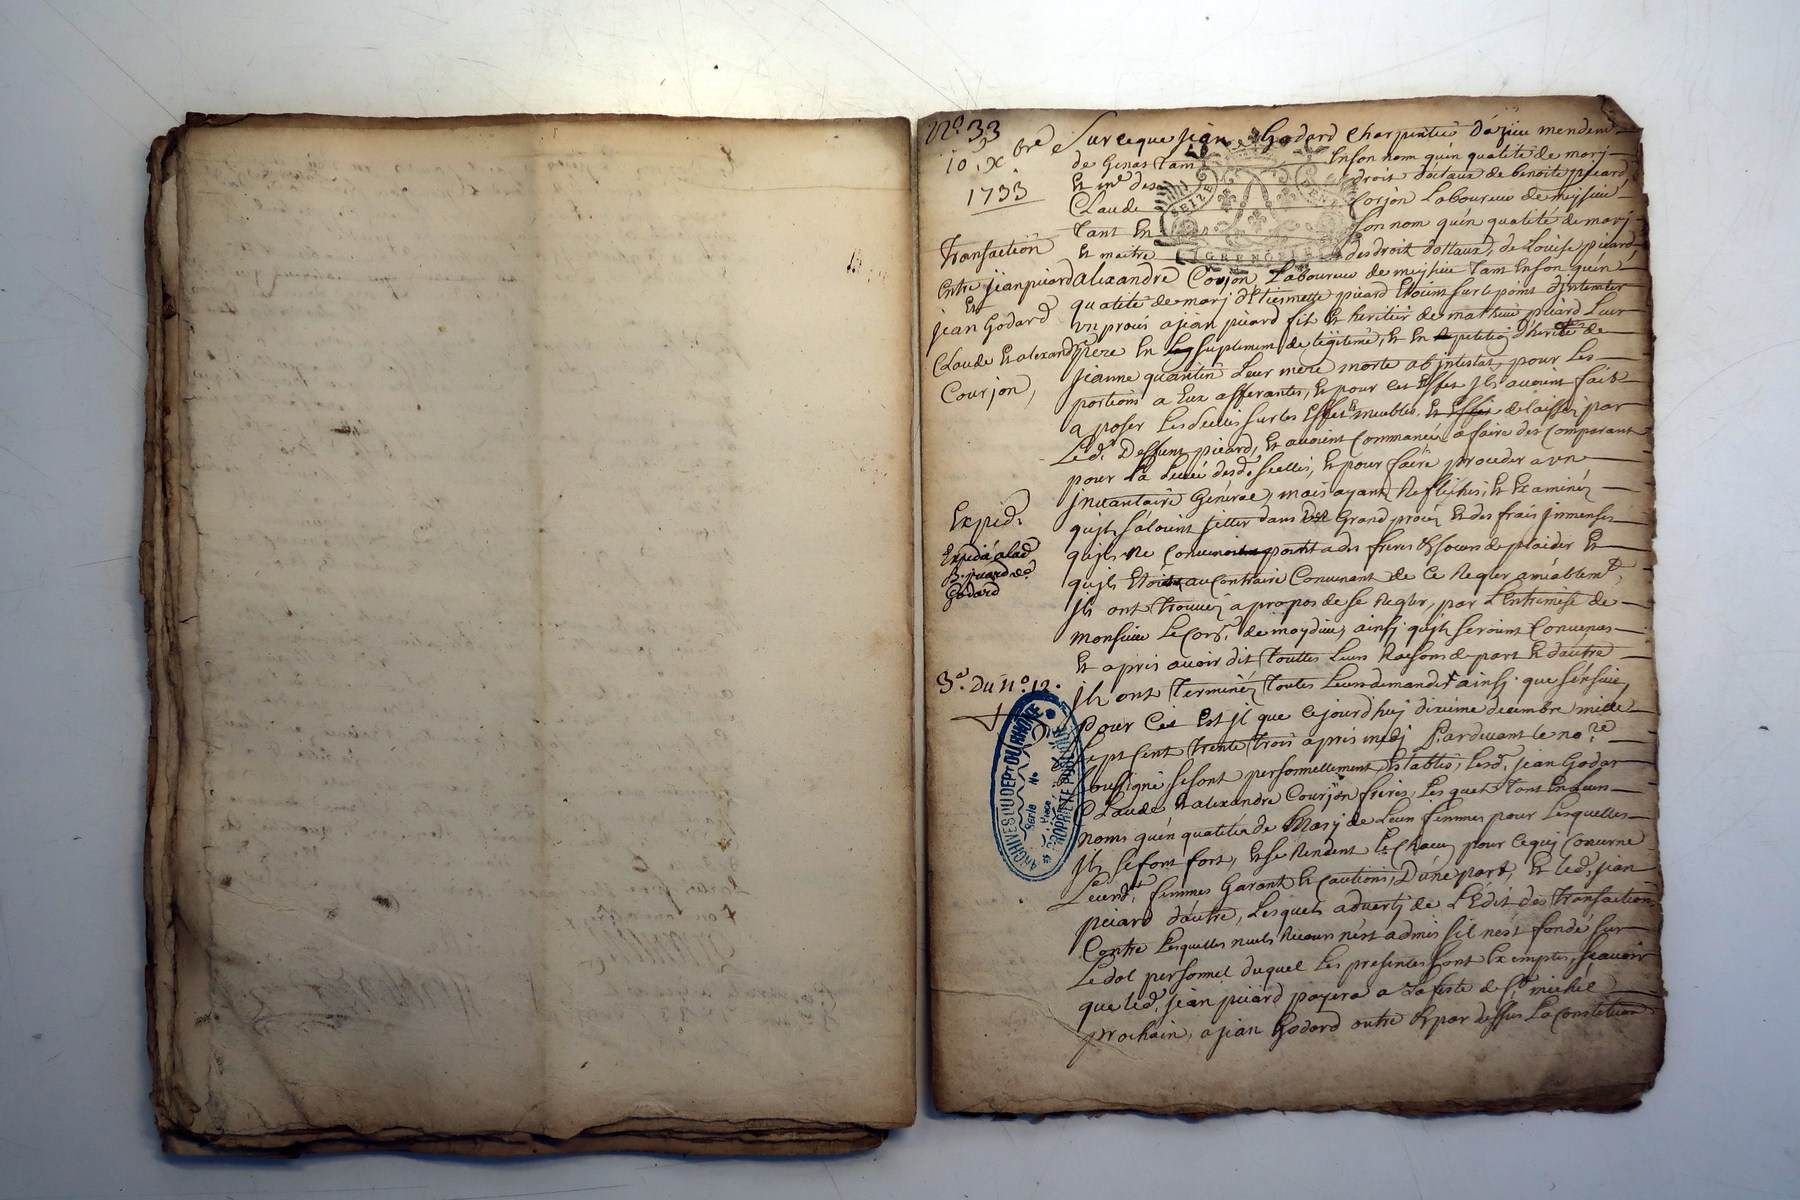 n.º 33
10.e xbre
1733
Transaction
Entre jean picard
Et
jean Godard
Claude Et alexandre
Courjon,
Exped.
Expedié alad.
B. picard de
Godard
3.e Du n.º 12.
Sur ce que jean Godard Charpentier D'azieu mendem.t
de Genas Tant En son nom qu'en qualité de marj
Et m.e des droit dottaux de benoite picard,
Claude Corjon Laboureur de meyssieu
Tant En son nom qu'en qualité de marj
Et maitre des droit dottaux, de Louise picard
alexandre Corjon Laboureur de meyssieu Tant En son qu'en
qualité de marj d'Etiennette picard Etoint sur le point d'intenter
un procés a jean picard fils Et heritier de mathieu picard Leur
Pere En suplement de legitime, Et En petition d'heredité de
jeanne quantin Leur mere morte ab intestat, pour Les
portions a Eux afferantes, Et pour cet Effet Ils avoint fait
a poser Les scellés sur les Effets Et meubles Et Effet delaissés par
Led. Deffunt picard, Et avoient Commancés a faire des comparant
pour La Levée desd. scellés, Et pour faire proceder a un
jnventaire General, mais ayant Reflechis, Et Examinés
qu'jls s'aloint jetter dans Grand procés Et des frais jmmenses
qu'jls Ne Convenoit point a des freres Et soeurs de plaider Et
qu'jls Etoit au contraire Convenant de Ce Regler amiablem.t,
jls ont trouvés a propos de se Regler, par L'Entremise de
monsieur Le Cors.r de moydieu, ainsj qu'jls seroint Convenus
Et apres avoir dit Touttes Leurs Raisons de part Et d'autre
jls ont Terminés Toutes Leurs demandes ainsj que s'ensuit,
Pour Ce Est jl que Cejourd'huj dixieme decembre mille
sept Cent Trente Trois apres midj Pardevant le no.re
soussigné se sont personnellement Etablis, Lesd. jean Godar
Claude Et alexandre Courjon freres, Les quels Tant En Leurs
noms qu'en qualités de Marj de Leurs femmes pour Lesquelles
jls se font fort, Et se Rendent Le Chacun pour Ce qui Concerne
Leurd. femmes Garant Et Cautions, D'une part, Et Led. jean
picard d'autre, Lesquels advertj de L'Edit des Transactions
Contre Lesquelles nuls Recours n'est admis s'il n'est fondé sur
Le dol personnel duquel Les presentes sont Exemptes, sçavoir
que led. jean picard payera a La feste de S.t michel
prochain, a jean Godard outre Et par dessus La Constitution
SEIZE DEN.
GRENOBLE
ARCHIVES DU DEP.T DU RHÔNE
Serie
No
Pièce
PROPRIÉTÉ PUBLIQUE